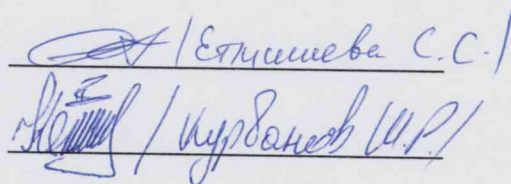 /Етмишева С.С./
/Курбанов Ш.Р./